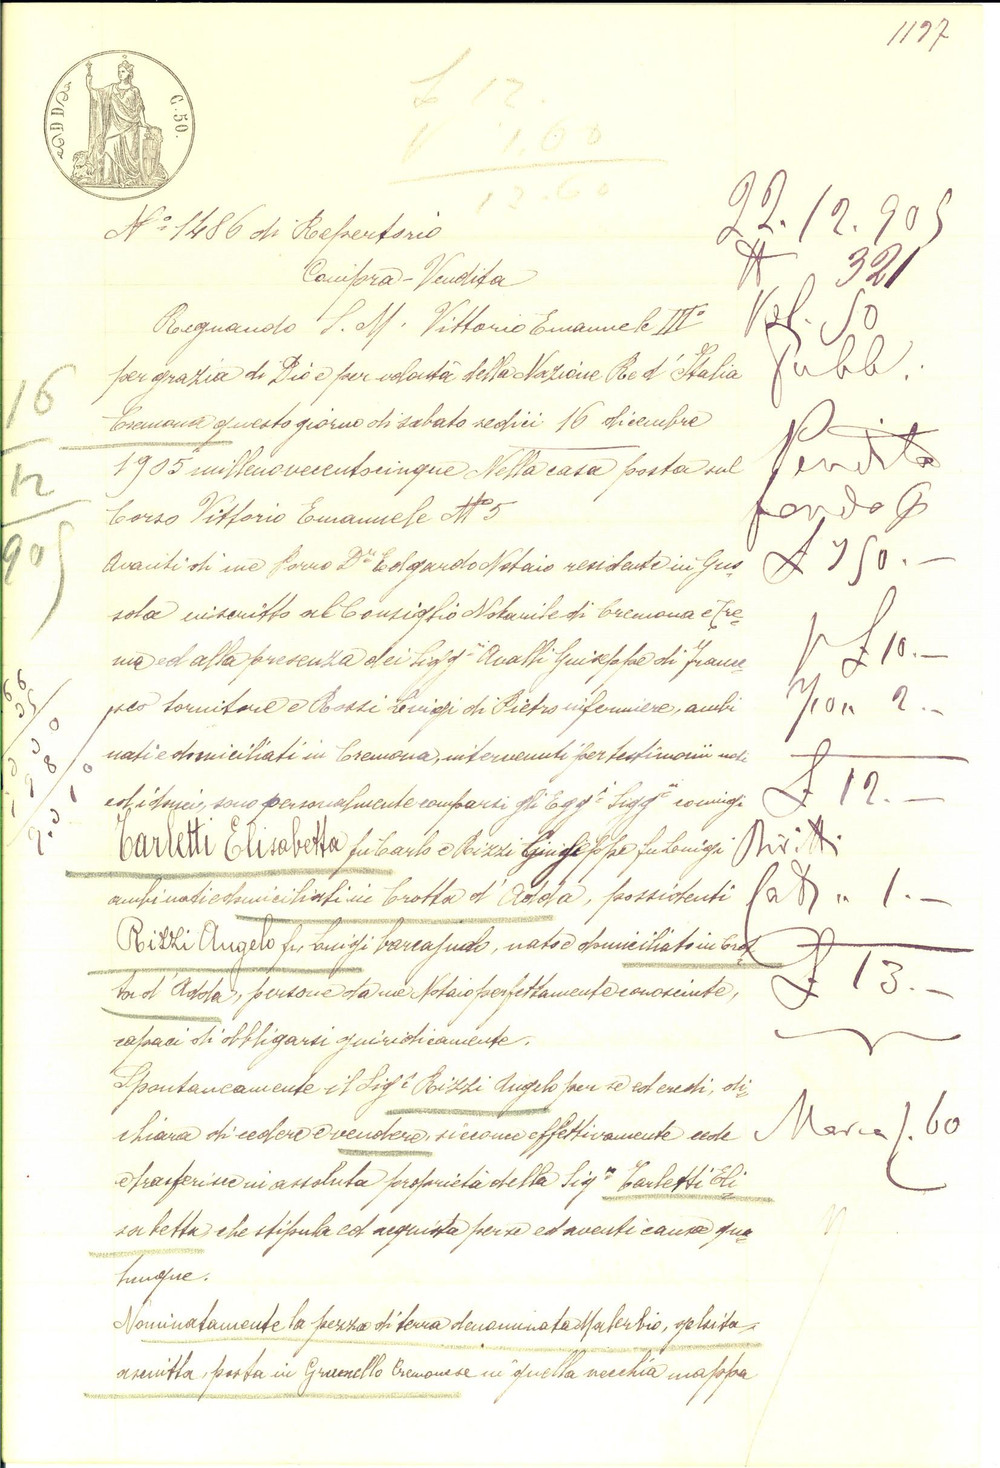 1197
C. 50.
L 12.
1,60
13.60
No 1486 di Repertorio
Compra-Vendita
Regnando S. M. Vittorio Emanuele III°
per grazia di Dio e per volontà della Nazione Re d'Italia
Cremona questo giorno di sabato sedici 16 dicembre
1905 millenovecentocinque Nella casa posta sul
Corso Vittorio Emanuele No 5
Avanti di me Porro Dr Edgardo Notaio residente in Gus-
sola inscritto al Consiglio Notarile di Cremona e Cre-
ma ed alla presenza dei Sigg.i Avalli Giuseppe di France-
sco tornitore e Rossi Luigi di Pietro infermiere, ambi
nati e domiciliati in Cremona, intervenuti per testimonii noti
ed idonei, sono personalmente comparsi gli Egg.i Sigg.i coniugi
Tarletti Elisabetta fu Carlo e Rizzi Giuseppe fu Luigi
ambi nati e domiciliati in Crotta d'Adda, possidenti
Rizzi Angelo fu Luigi, nato e domiciliato in Crot-
ta d'Adda, persone da me Notaio perfettamente conosciute,
capaci di obbligarsi giuridicamente.
Spontaneamente il Sig.r Rizzi Angelo per sé ed eredi, di-
chiara di cedere e vendere, siccome effettivamente cede
e trasferisce in assoluta proprietà della Sig.ra Tarletti Eli-
sabetta che stipula ed acquista per sé ed aventi causa qua-
lunque.
Nominatamente la pezza di terra denominata Malerbio, gelsita
ascritta, posta in Grumello Cremonese in quella vecchia mappa
22.12.905
N 321
Vol. 50
Pubb.
Vendita
fondo
£ 750.-
£ 10.-
2.-
£ 12.-
Diritti
Cat " 1.-
£ 13.-
Marca f. 60
16
12
905